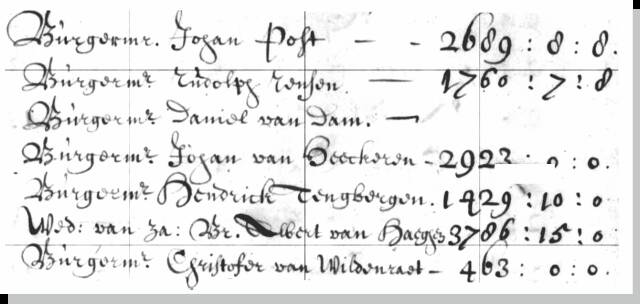 Bürgermr. Johan Post — - 2689 : 8 : 8.
Bürgermr Rudolph Jensen. — 1760 : 7 : 8
Bürgermr Daniel van Dam. —
Bürgermr Johan van Heeckeren - 2922 : 0 : 0.
Bürgermr Hendrick Tengbergen. 1429 : 10 : 0
Wed: van za: Br. Elbert van Haegen 3786 : 15 : 0
Bürgermr Christofer van Wildenraet - 463 : 0 : 0.